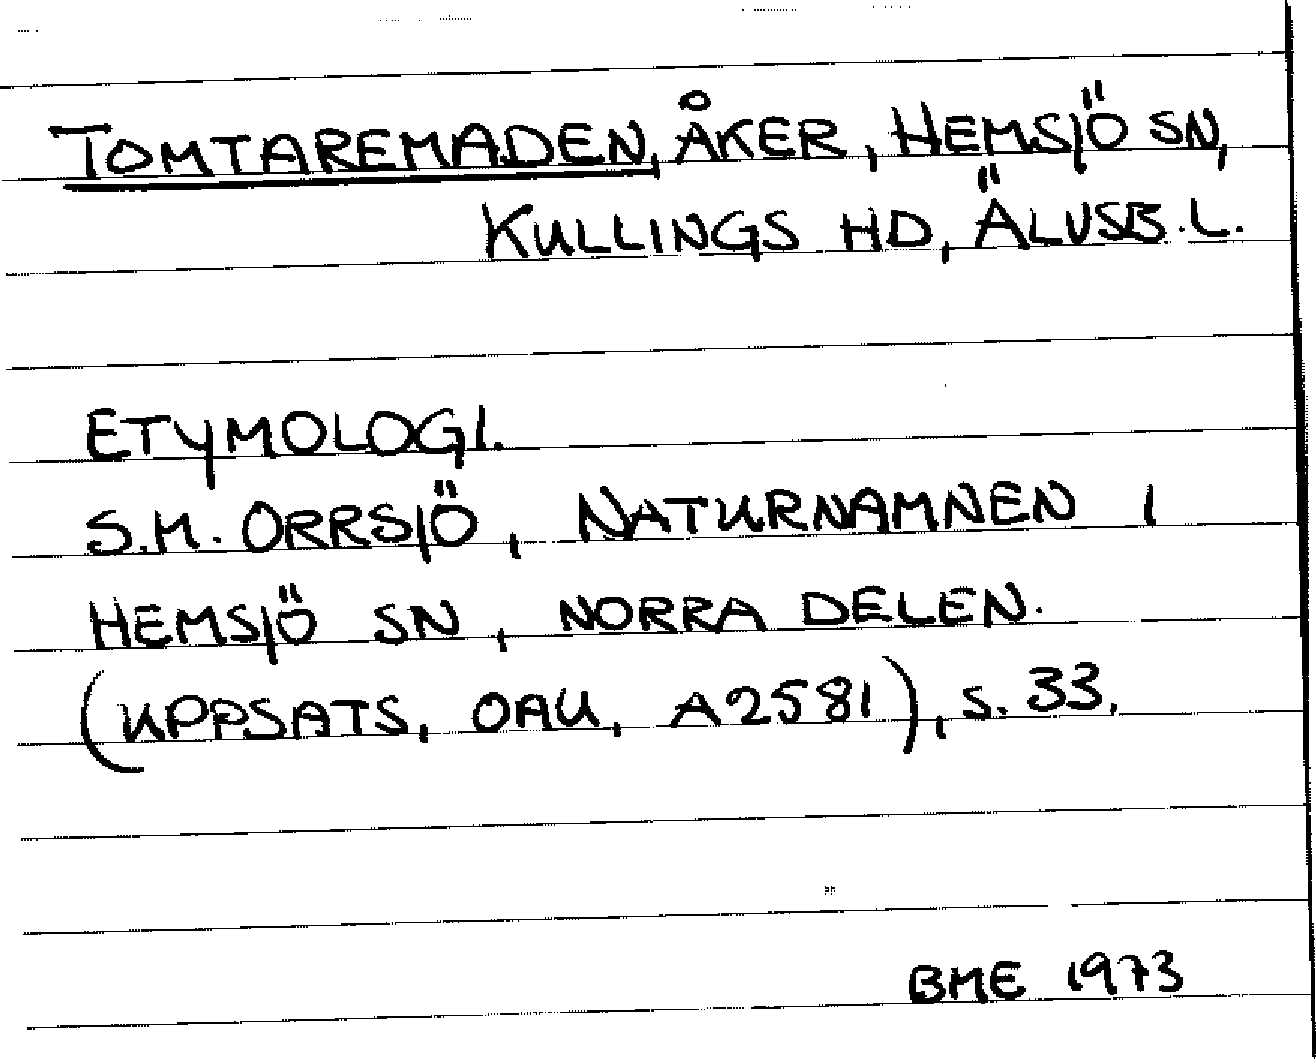 TOMTAREMADEN, ÅKER, HEMSJÖ SN,
KULLINGS HD, ÄLVSB. L.
ETYMOLOGI.
S.M. ORRSJÖ, NATURNAMNEN I
HEMSJÖ SN, NORRA DELEN.
(UPPSATS, OAU, A2581), S. 33.
BME 1973